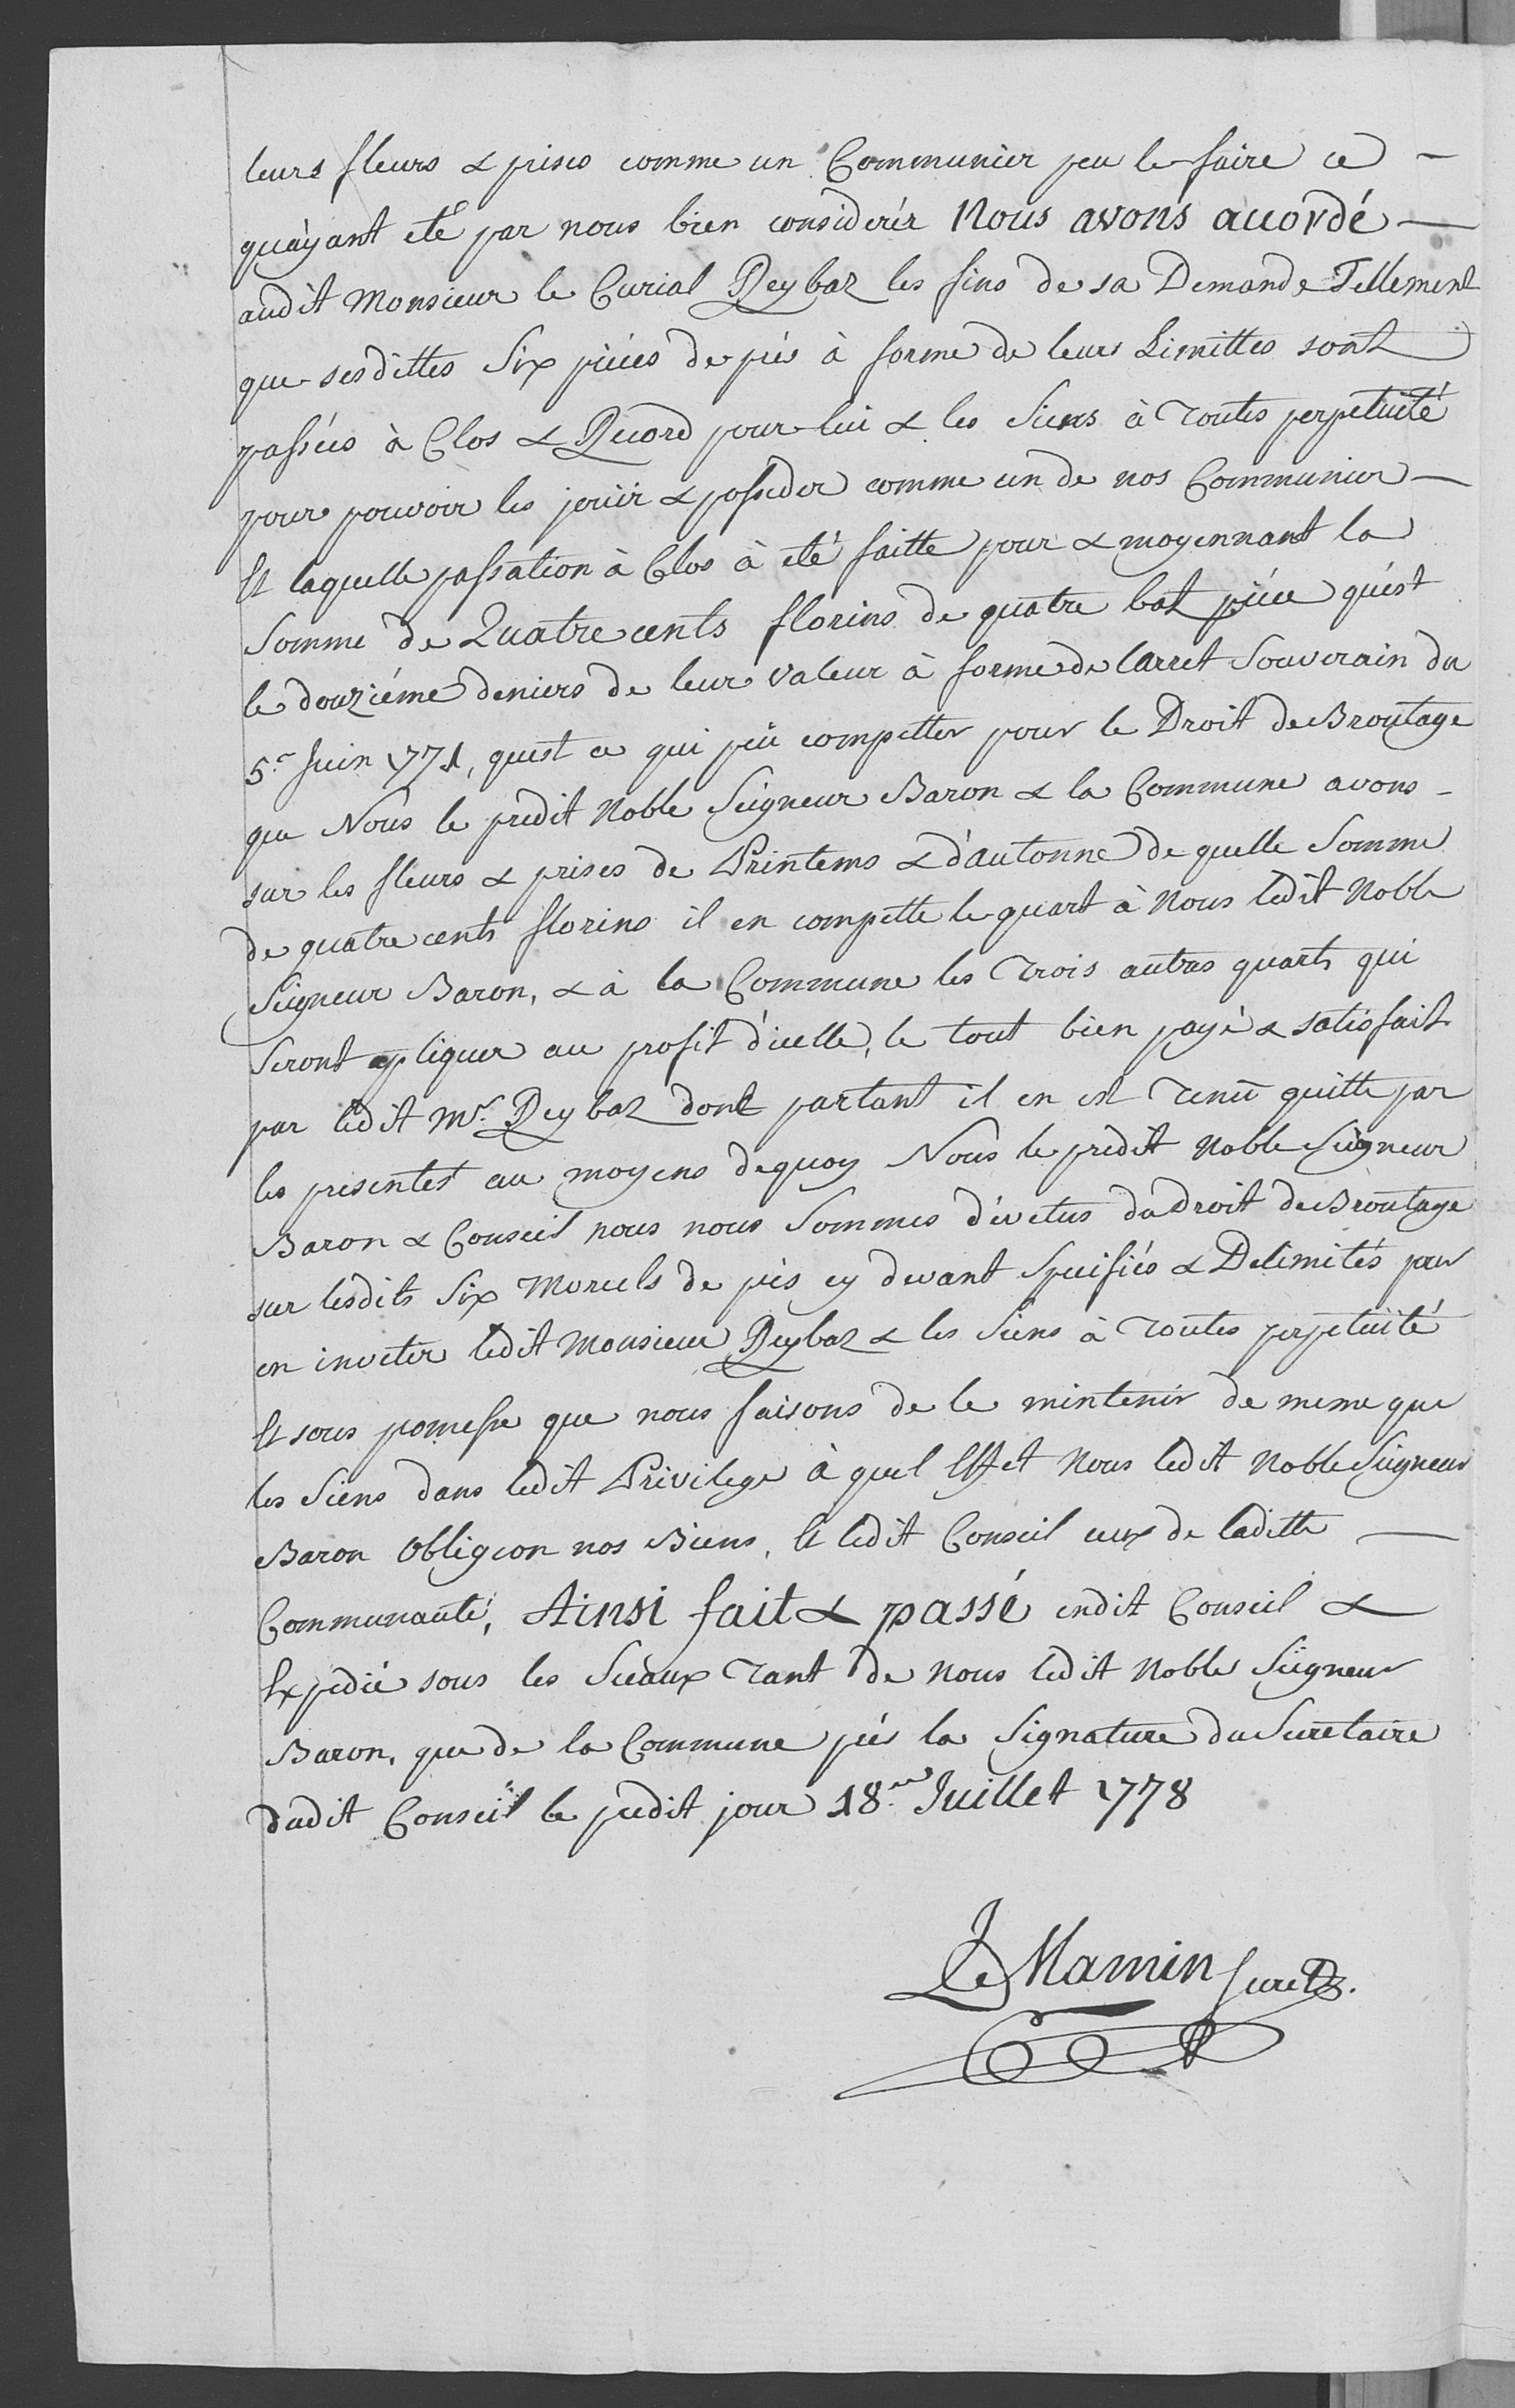 leurs fleurs & prises comme un Communier peu le faire ce
qu'ayant eté par nous bien considerér Nous avons accordé
audit Monsieur le Curial Reybaz les fins de sa Demande Tellement
que sesdittes Six piéces de prés à forme de leurs Limittes sont
passées à Clos & Record pour lui & les Siens à toutes perpetuité
pour pouvoir les joüir & posseder comme un de nos Communier
Et laquelle passation à Clos à eté faitte pour & moyennant la
Somme de Quatre cents florins de quatre batz piéce qu'est
le douziéme deniers de leur valeur à forme de larret Souverain du
5.e Juin 1771, quest ce qui peu competter pour le Droit de Broutage
que Nous le predit Noble Seigneur Baron & la Commune avons
sur les fleurs & prises de Printems & d'autonne de quelle Somme
de quatre cents florins il en compette le quart à Nous ledit Noble
Seigneur Baron, & à la Commune les Trois autres quarts qui
Seront apliquer au profit d'icelle, le tout bien payé & satisfait
par ledit Mr. Reybaz dont partant il en est Tenu quitte par
les presentes au moyens dequoy Nous le predit Noble Seigneur
Baron & Conseil nous nous Sommes dévetus du Droit de Broutage
sur lesdits Six Morcels de prés cy devant Specifiés & Delimités pour
en inveter ledit Monsieur Reybaz & les Siens à toutes perpetuité
Et sous promesse que nous faisons de le mintenir de meme que
les Siens dans ledit Privilege à quel Effet Nous ledit Noble Seigneur
Baron Obligeon nos Biens, Et ledit Conseil ceux de laditte
Communauté, Ainsi fait & passé endit Conseil &
Expedié sous les Sceaux Tant de Nous ledit Noble Seigneur
Baron, que de la Commune prés la Signature du Secretaire
dudit Conseil le predit jour 18.e Juillet 1778
Le Mamin Secret.